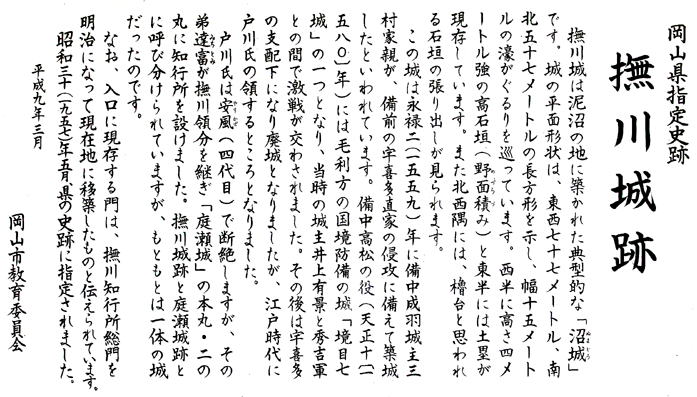 岡山県指定史跡
撫川城跡
撫川城は泥沼の地に築かれた典型的な「沼城」
です。城の平面形状は、東西七十七メートル、南
北五十七メートルの長方形を示し、幅十五メート
ルの濠がぐるりを巡っています。西半に高さ四メ
ートル強の高石垣(野面積み)と東半には土塁が
現存しています。また北西隅には、櫓台と思われ
る石垣の張り出しが見られます。
この城は永禄二(一五五九)年に備中成羽城主三
村家親が、備前の宇喜多直家の侵攻に備えて築城
したといわれています。備中高松の役(天正十(一
五八〇)年)には毛利方の国境防備の城「境目七
城」の一つとなり、当時の城主井上有景と秀吉軍
との間で激戦が交わされました。その後は宇喜多
の支配下になり廃城となりましたが、江戸時代に
戸川氏の領するところとなりました。
戸川氏は安風(四代目)で断絶しますが、その
弟達富が撫川領分を継ぎ「庭瀬城」の本丸・二の
丸に知行所を設けました。撫川城跡と庭瀬城跡と
に呼び分けられていますが、もともとは一体の城
だったのです。
なお、入口に現存する門は、撫川知行所総門を
明治になって現在地に移築したものと伝えられています。
昭和三十二(一九五七)年五月県の史跡に指定されました。
平成九年三月
岡山市教育委員会